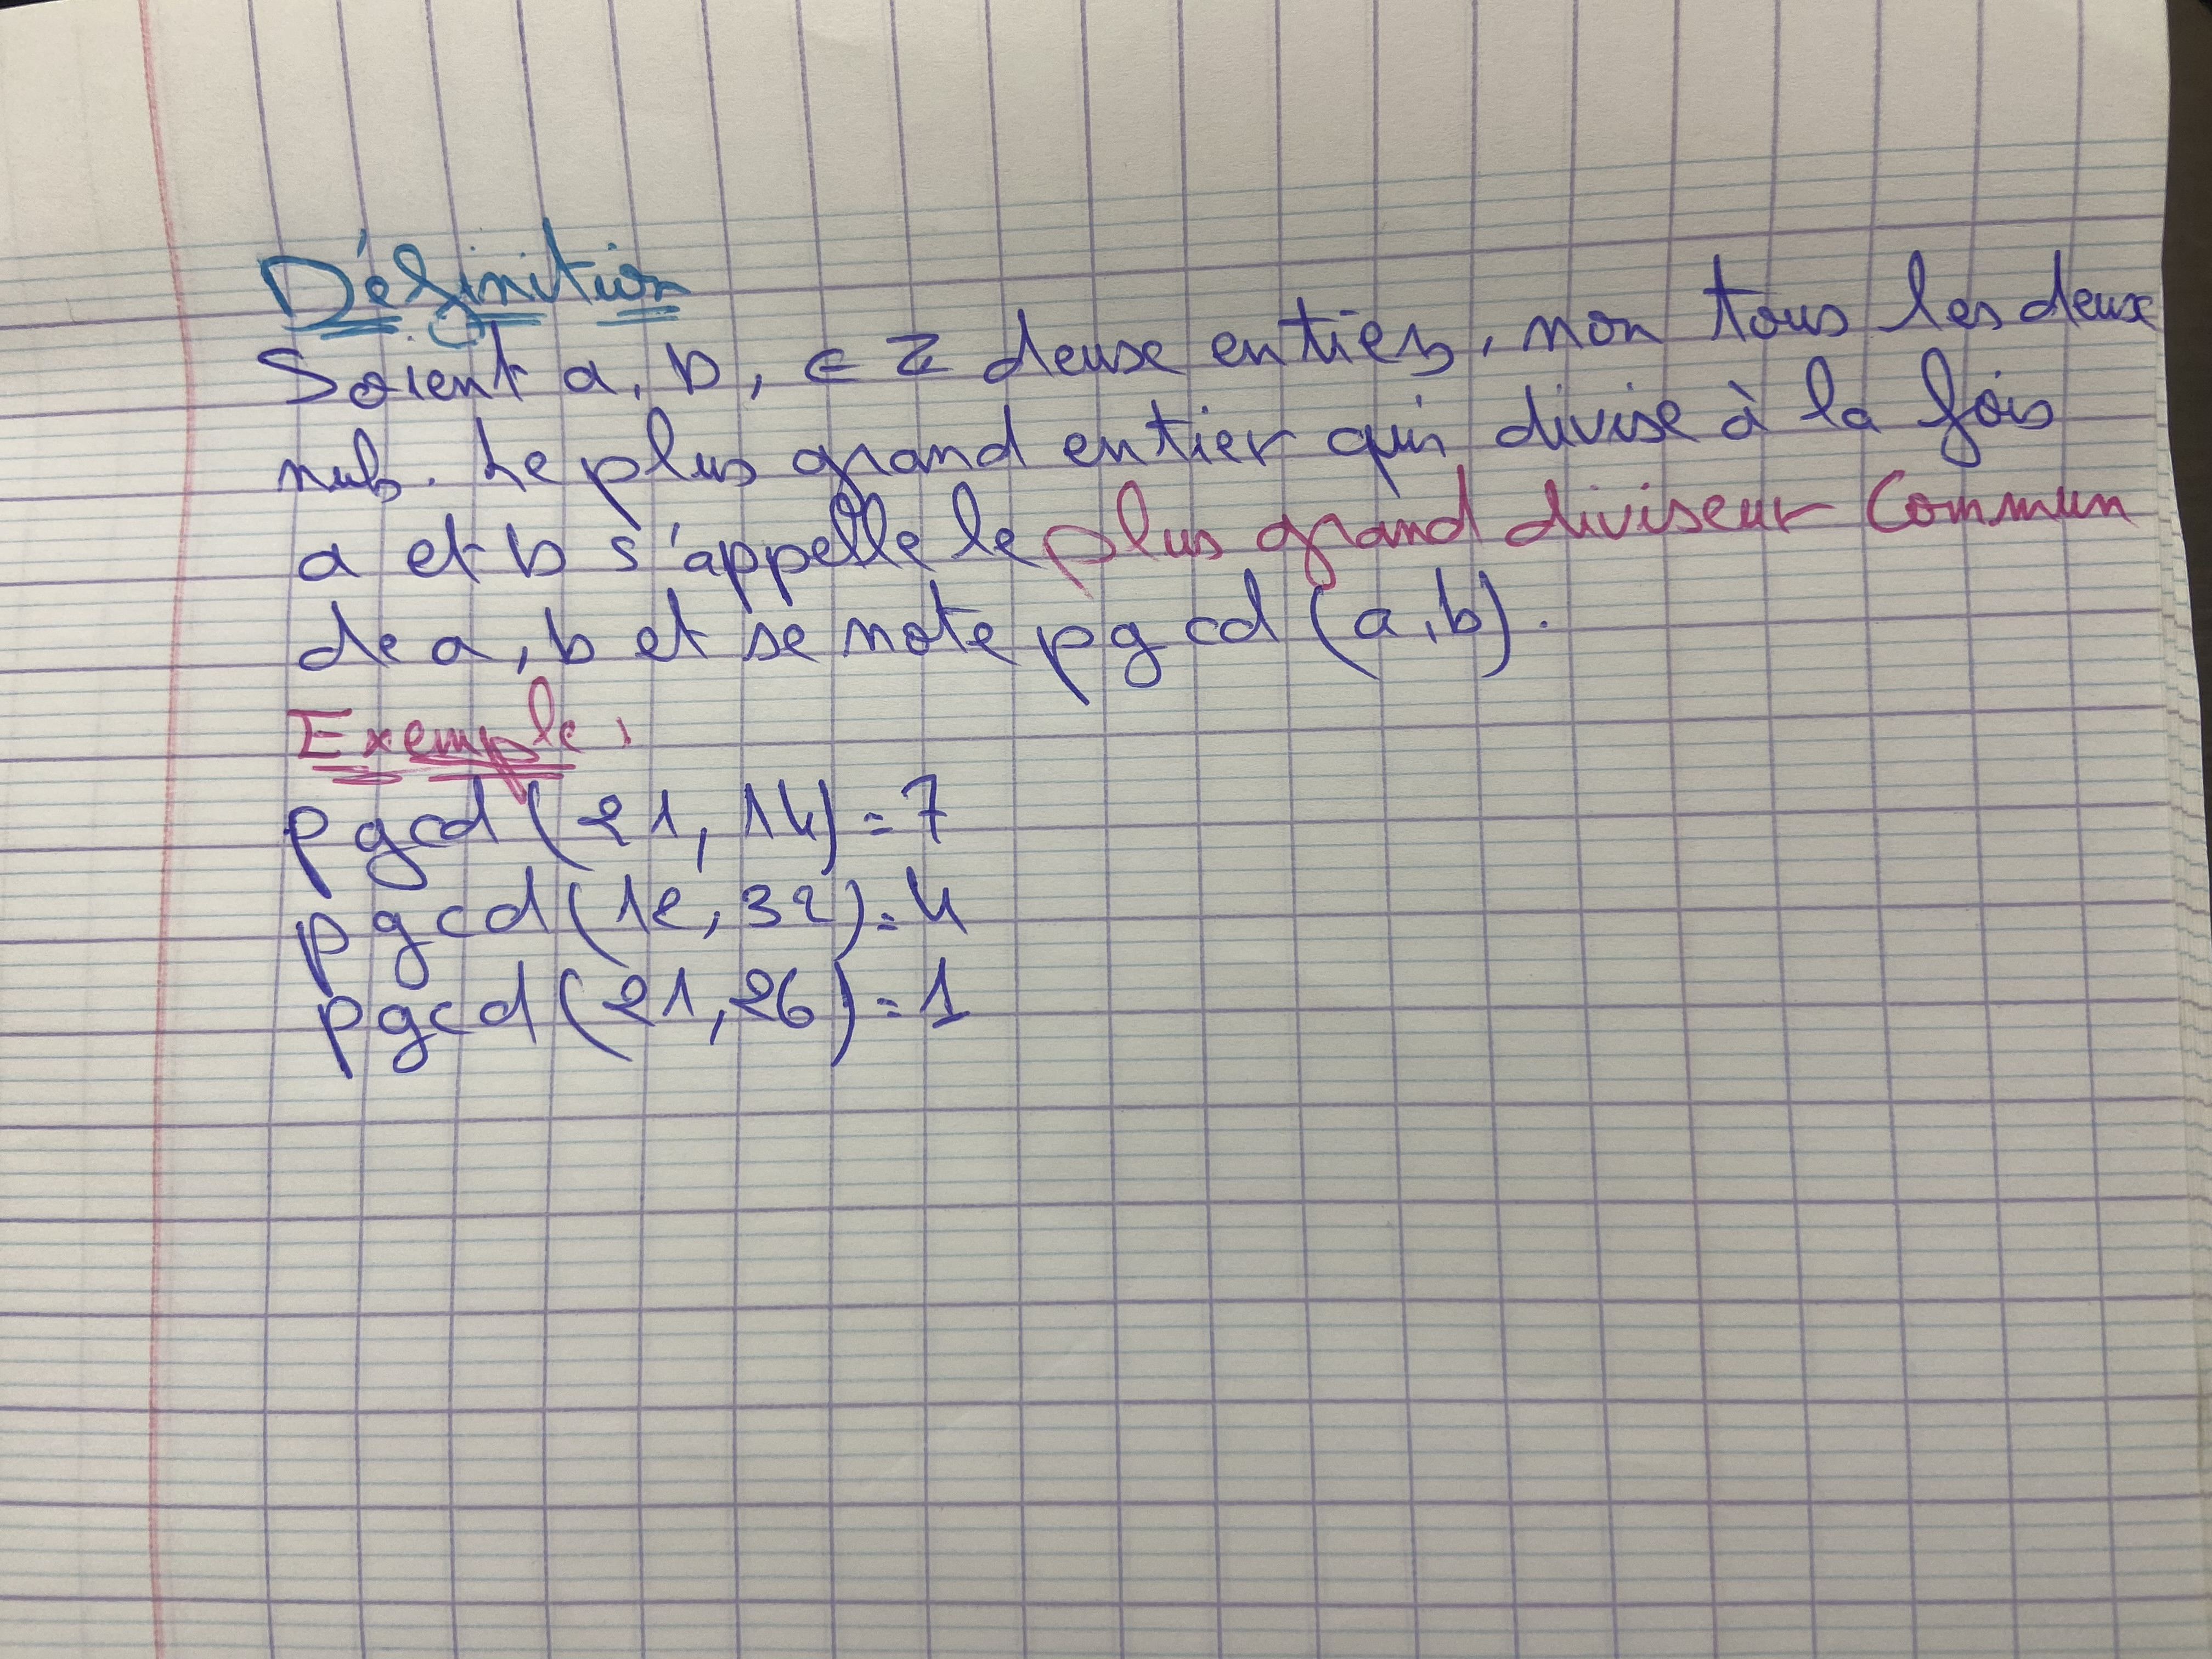 Définition
Soient a, b, ∈ Z deux entiers, non tous les deux
nuls. Le plus grand entier qui divise à la fois
a et b s'appelle le plus grand diviseur Commun
de a, b et se note pgcd (a,b).
Exemple:
pgcd (21, 14) = 7
pgcd (12, 32) = 4
pgcd (21, 26) = 1